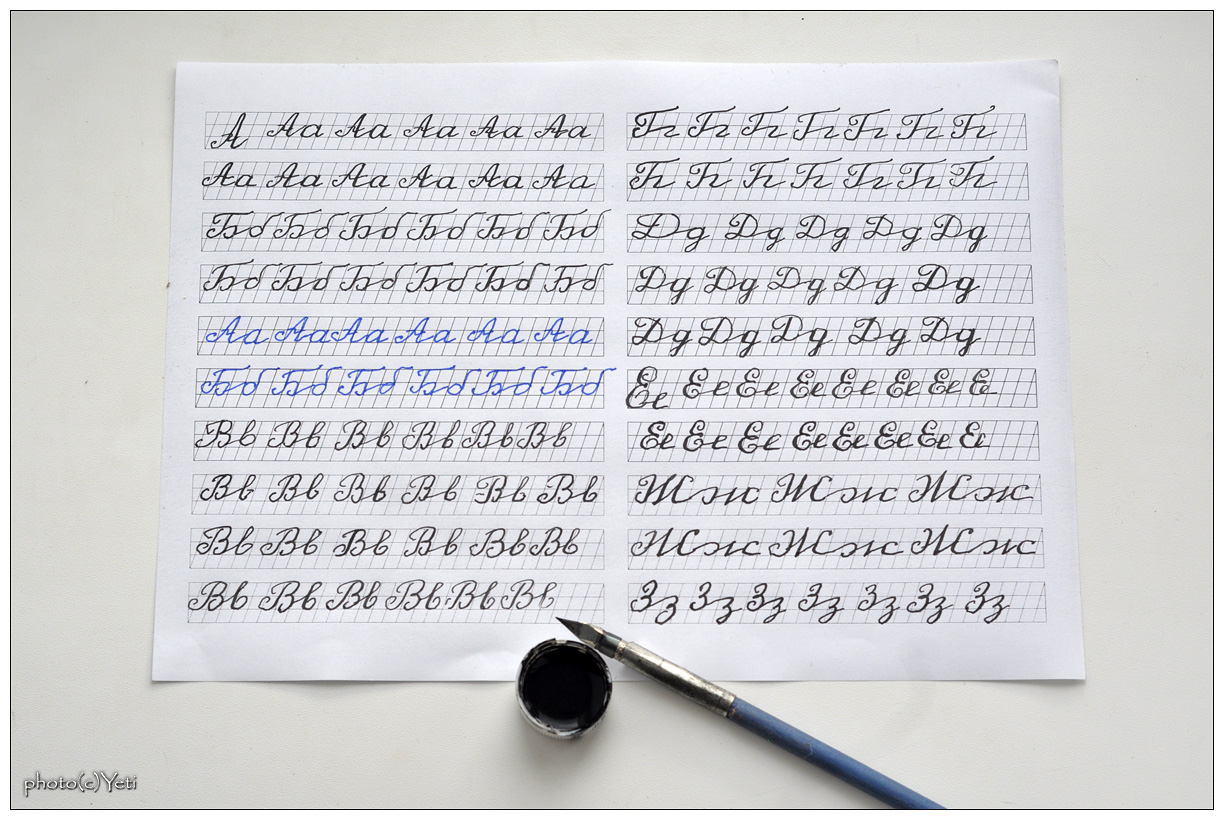 А Аа Аа Аа Аа Аа
Аа Аа Аа Аа Аа Аа
Бб Бб Бб Бб Бб Бб
Бб Бб Бб Бб Бб Бб
Аа Аа Аа Аа Аа Аа
Бб Бб Бб Бб Бб Бб
Вв Вв Вв Вв Вв Вв
Вв Вв Вв Вв Вв Вв
Вв Вв Вв Вв Вв Вв
Вв Вв Вв Вв Вв Вв
Гг Гг Гг Гг Гг Гг Гг
Гг Гг Гг Гг Гг Гг Гг
Дд Дд Дд Дд Дд
Дд Дд Дд Дд Дд
Дд Дд Дд Дд Дд
Ее Ее Ее Ее Ее Ее Ее Ее
Ее Ее Ее Ее Ее Ее Ее Ее
Жж Жж Жж
Жж Жж Жж
Зз Зз Зз Зз Зз Зз Зз
photo(c)Yeti